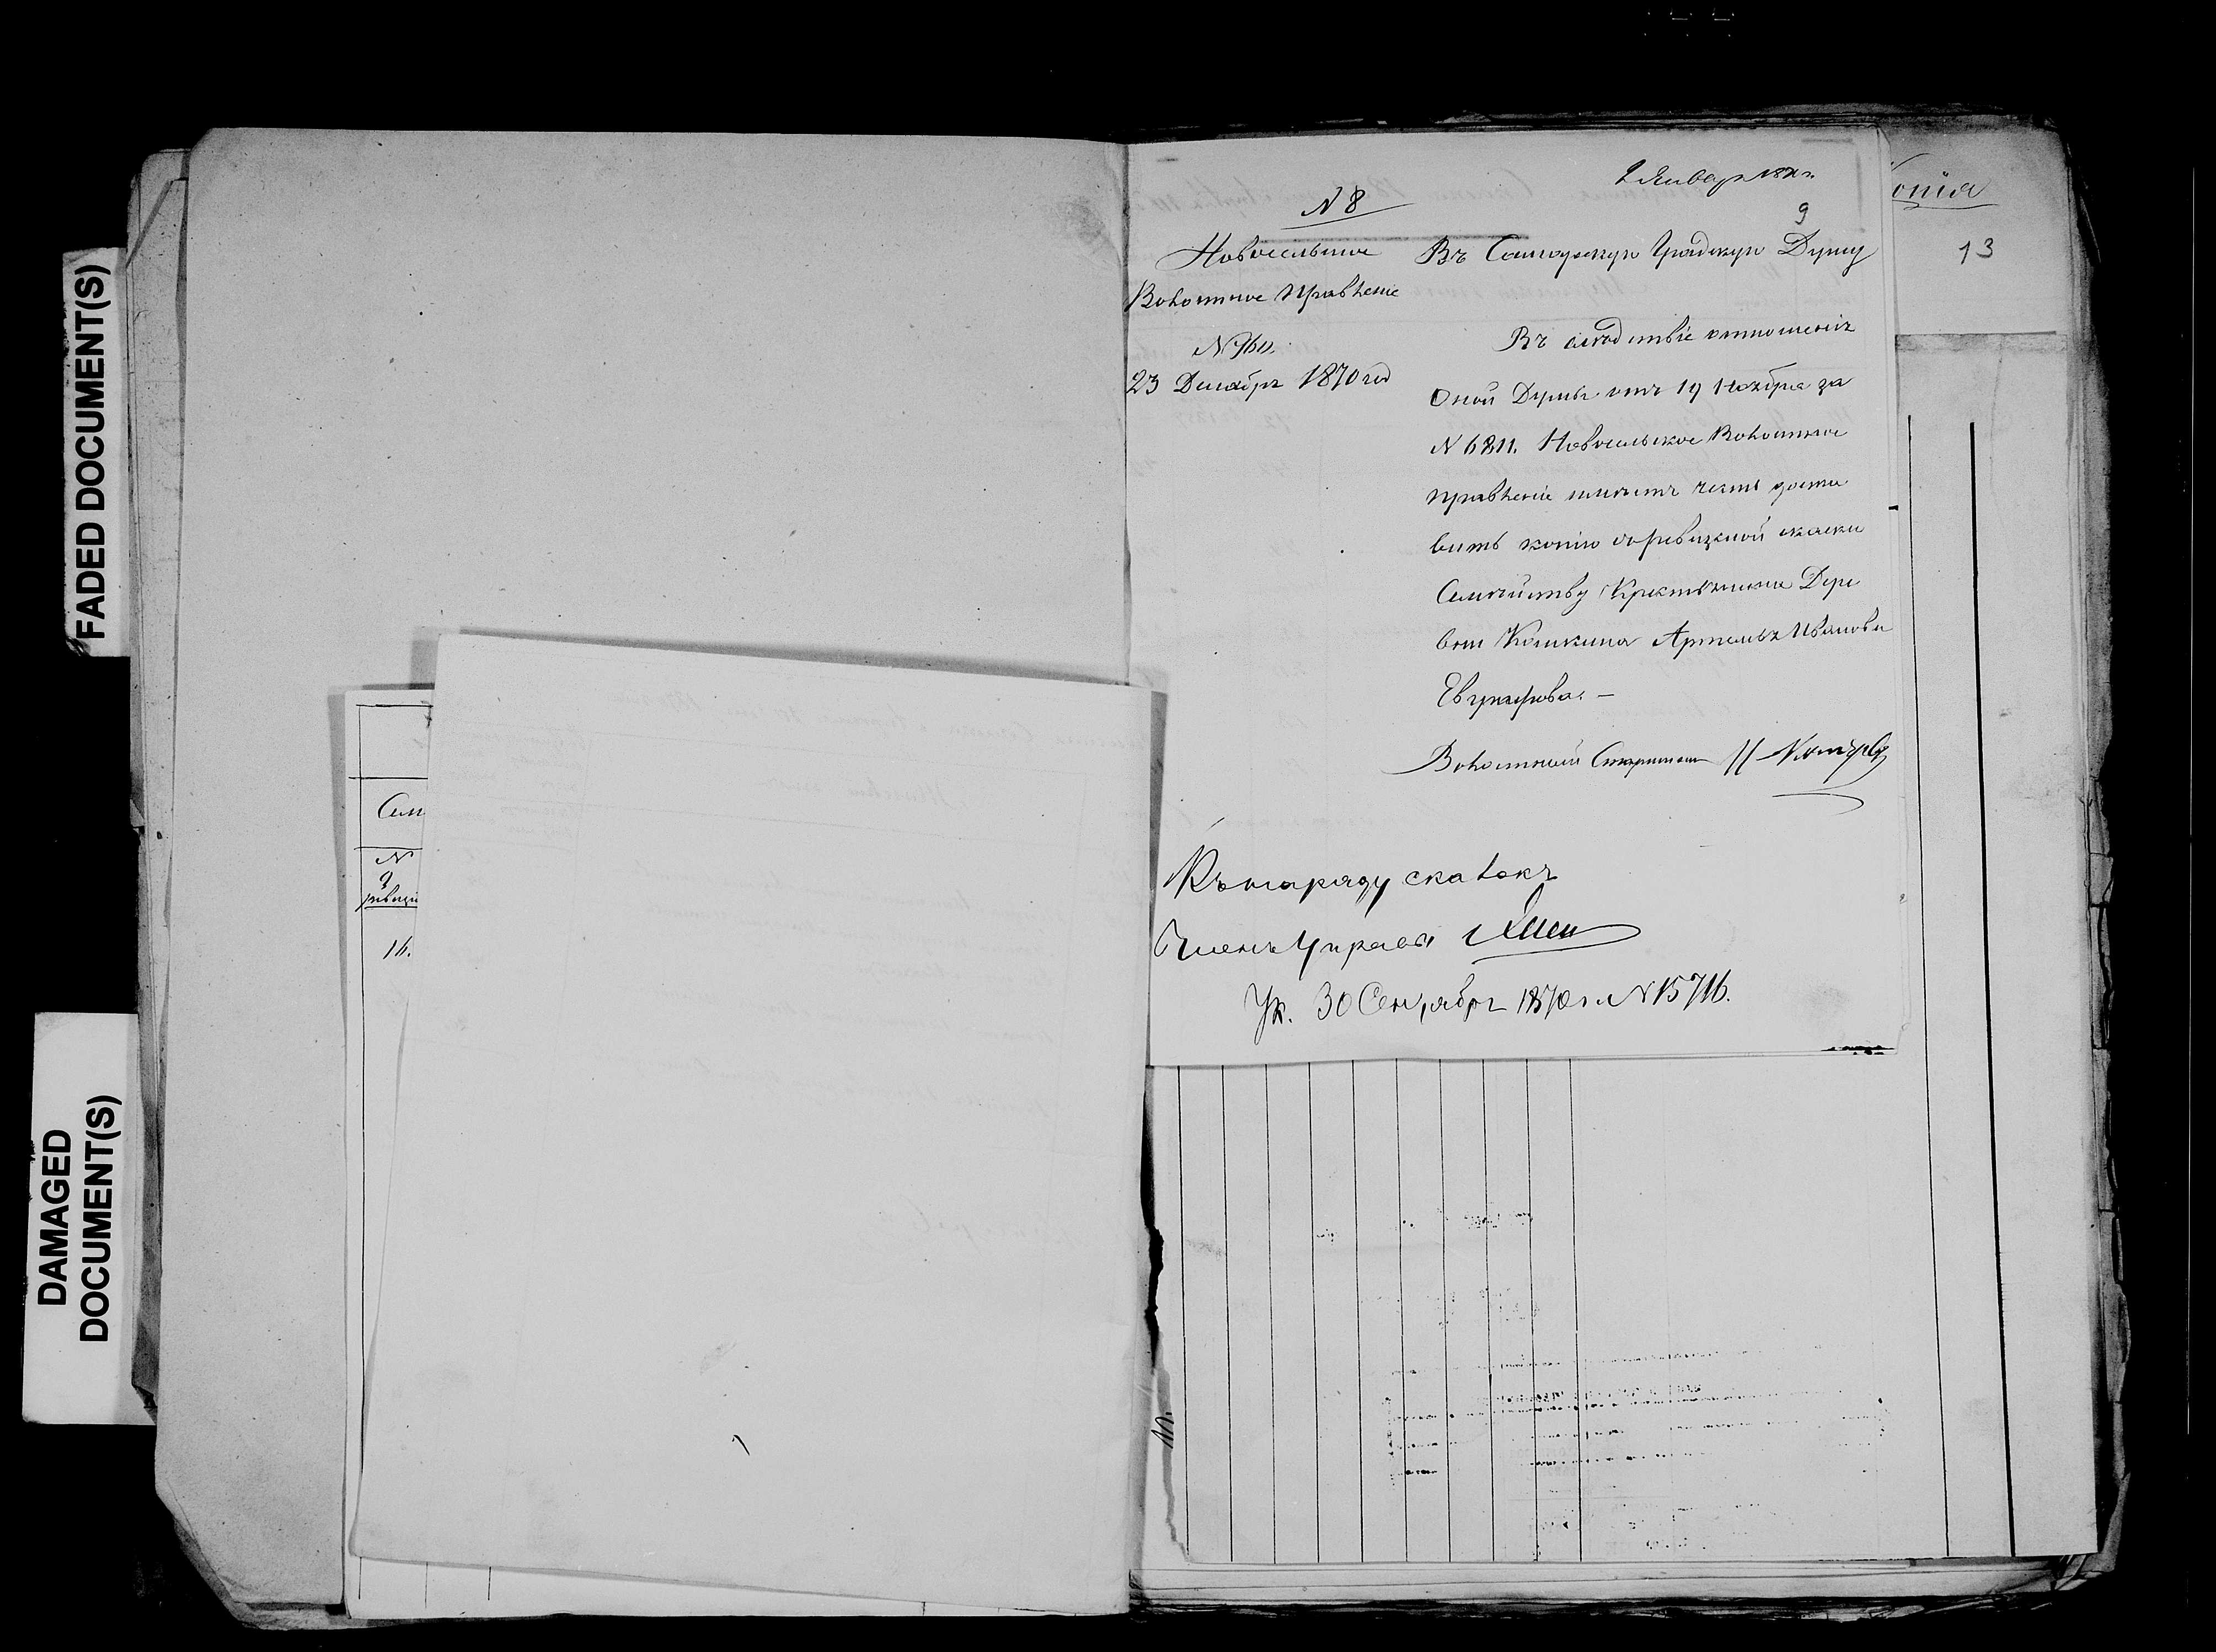 FADED DOCUMENT(S)
DAMAGED
DOCUMENT(S)
Сем
N
9
ревизи
16.
2 Января 1871 г.
N 8
9
Новосельское
Волостное Правленіе
N 960.
23 Декабря 1870 год
Въ Самарскую Градскую Думу
Въ следствіе отношенія
Оной Думы отъ 19 Ноября за
N 6811. Новосельское Волостное
Правленіе имѣетъ честь доста
вить копію съ ревизской скаски
Семейству Крестьянина Дере
вни Кошкина Артемья Иванова
Евграфова. —
Волостной Старшина
Къ наряду сказокъ
Членъ Управы
Ук. 30 Сентября 1870 г. N 15716.
копія
13